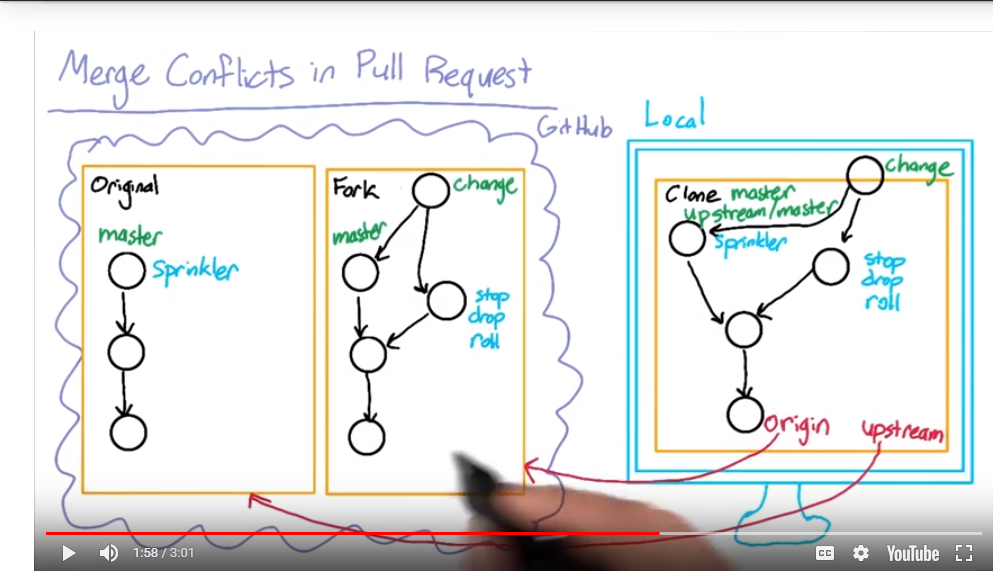 Merge Conflicts in Pull Request
GitHub
Local
Original
master
Sprinkler
Fork
change
master
stop
drop
roll
change
Clone master
upstream/master
Sprinkler
stop
drop
roll
origin
upstream
1:58 / 3:01
CC
YouTube